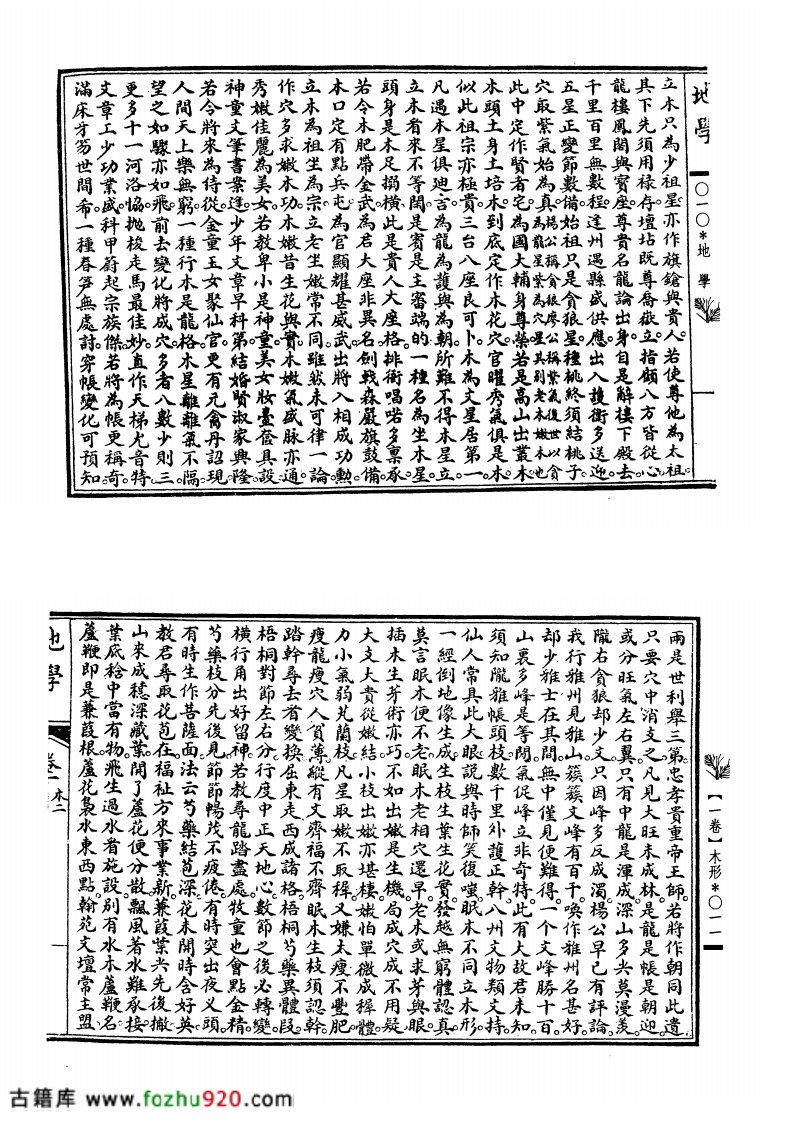 地學
〇一〇*地學
立木只為少祖星亦作旗鎗與貴人若使尊他為太祖
其下先須用祿存壇坫既尊喬嶽立指顧八方皆從心
龍樓鳳閣與寶座尊貴名龍論出身自是辭樓下殿去
千里百里無數程達州遇縣盛供應出入護衛多送迎
五星正變節數備始祖只是貪狼星種桃終須結桃子
穴取紫氣始為真楊公稱貪狼廖公稱紫氣後世以貪為龍星紫為穴星其別老木嫩木也
此中定作賢者宅為國大輔身尊榮若是高山出叢木
木頭土身土培木到底定作木花穴官曜秀氣俱是木
似此祖宗亦極貴三台八座良可卜木為文星居第一
凡遇木星俱廸吉為龍為護與為朝所難不得木星立
立木看來不等閒是賓是主審端的一種名為坐木星
頭身是木足搨橫此是貴人大座格排衙唱喏多稟承
若令木肥帶金武為君大座非異名劍戟森嚴旗鼓備
木口定有點兵屯為官顯耀甚威武出將入相成功勳
立木為祖坐為宗立老坐嫩常不同雖然未可律一論
作穴多求嫩木功木嫩昔生花與實木嫩氣盛脉亦通
秀嫩佳麗為美女若教卑小是神童美女妝臺奩具設
神童文筆書案逢少年文章早科第結婚賢淑家興隆
若令將來為侍從金童玉女聚仙官更有元禽丹詔現
人間天上樂無窮一種行木是龍格木星離離氣不隔
望之如驟亦如飛前去變化將成穴多者八數少則三
更多十一河洛恊拋梭走馬最佳妙直作天梯尤音特
文章工少功業盛科甲蔚起宗族傑若將為帳更稱奇
滿床牙笏世間希一種春笋無處討穿帳變化可預知
【一卷】木形*〇一一
兩是世利舉三第忠孝貴重帝王師若將作朝同此遺
只要穴中消支之凡見大旺未成林是龍是帳是朝迎
或分旺氣左右翼只有中龍是渾成深山多共莫漫羨
隴右貪狼却少文只因峰多反成濁楊公早已有評論
我行雅州見雅山簇簇文峰有百千喚作雅州名甚好
却少雅士在其間無中僅見便難得一個文峰勝十百
山裏多峰是等閒氣促峰立非奇特此有大故君未知
須知隴雅帳頭枝數千里外護正幹八州文物類支持
仙人常具此大眼說與時師笑復嗤眠木不同立木形
一經倒地像生成生枝生葉生花實發越無窮體認真
莫言眠木便不老眠木老相穴還早老木或求芽與眼
插木生芽術亦巧不如出嫩是生機局成穴成不用疑
大支大貴從嫩結小枝出嫩亦堪棲嫩怕單微成穉體
力小氣弱芄蘭枝凡星取嫩不取穉又嫌太瘦不豐肥
瘦龍瘦穴人貧薄縱有文齊福不齊眠木生枝須認幹
踏幹尋去首變換屈東走西成諸格梧桐芍藥異體段
梧桐對節左右分行度中正天地心數節之後必轉變
橫行角出好留神若教尋龍踏盡處牧童也會點金精
芍藥枝分先後見節節暢茂不疲倦有時突出夜义頭
有時生作菩薩面法云芍藥結苞深花未開時含好英
教君尋取花苞在福祉方來事業新蒹葭葉共先後撤
山來成穗深藏葉開了蘆花便分散飄風著水難承接
葉底稔中當有物飛生過水者施設別有水木蘆鞭名
蘆鞭即是蒹葭根蘆花裊水東西點翰苑文壇常主盟
地學
卷一
木二
古籍库 www.fozhu920.com